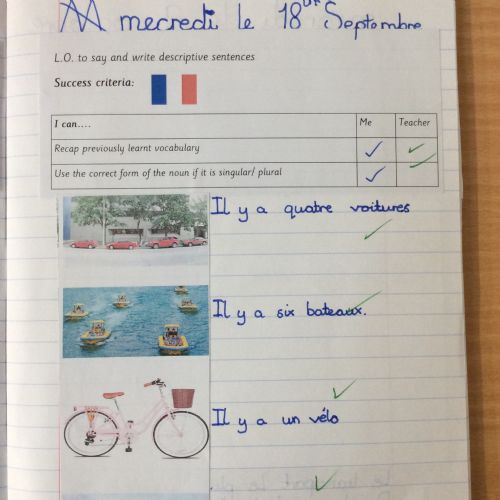 mecredi le 18 Septembre
L.O. to say and write descriptive sentences
Success criteria:
I can.... Me Teacher
Recap previously learnt vocabulary
Use the correct form of the noun if it is singular/ plural
Il y a quatre voitures
Il y a six bateaux.
Il y a un vélo